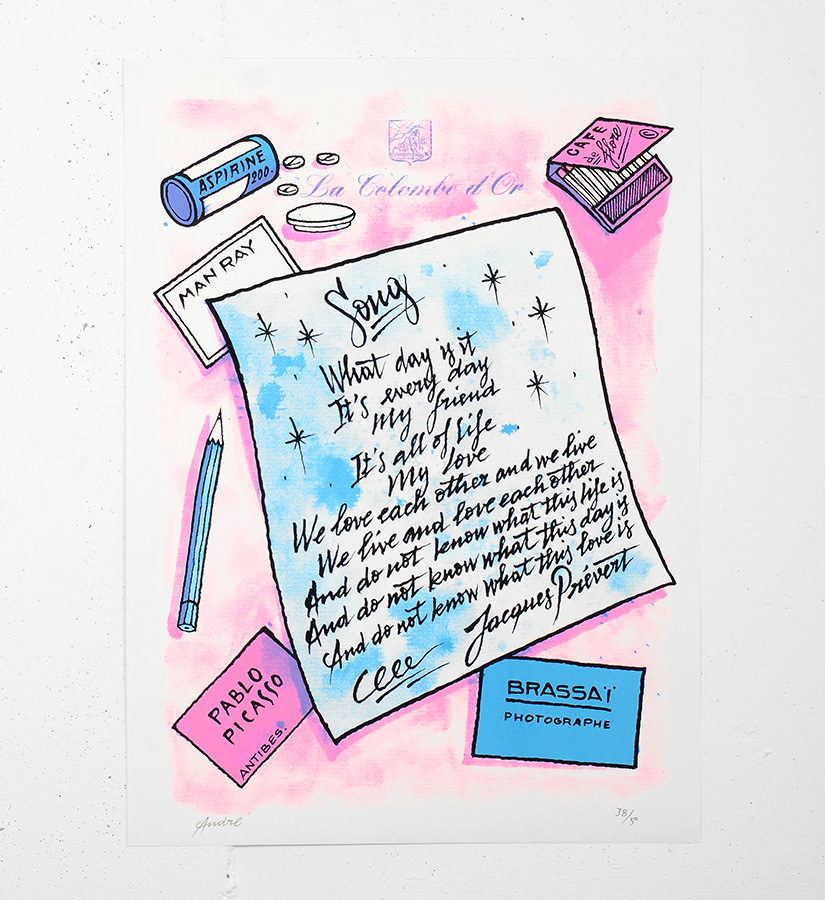 ASPIRINE
200.
La Colombe d'Or
CAFE
de
flore
©
MAN RAY
Song
What day is it
It's every day
My friend
It's all of life
My Love
We love each other and we live
We live and love each other
And do not know what this life is
And do not know what this day is
And do not know what this love is
Jacques Prévert
PABLO
PICASSO
ANTIBES.
BRASSAÏ
PHOTOGRAPHE
André
38/50